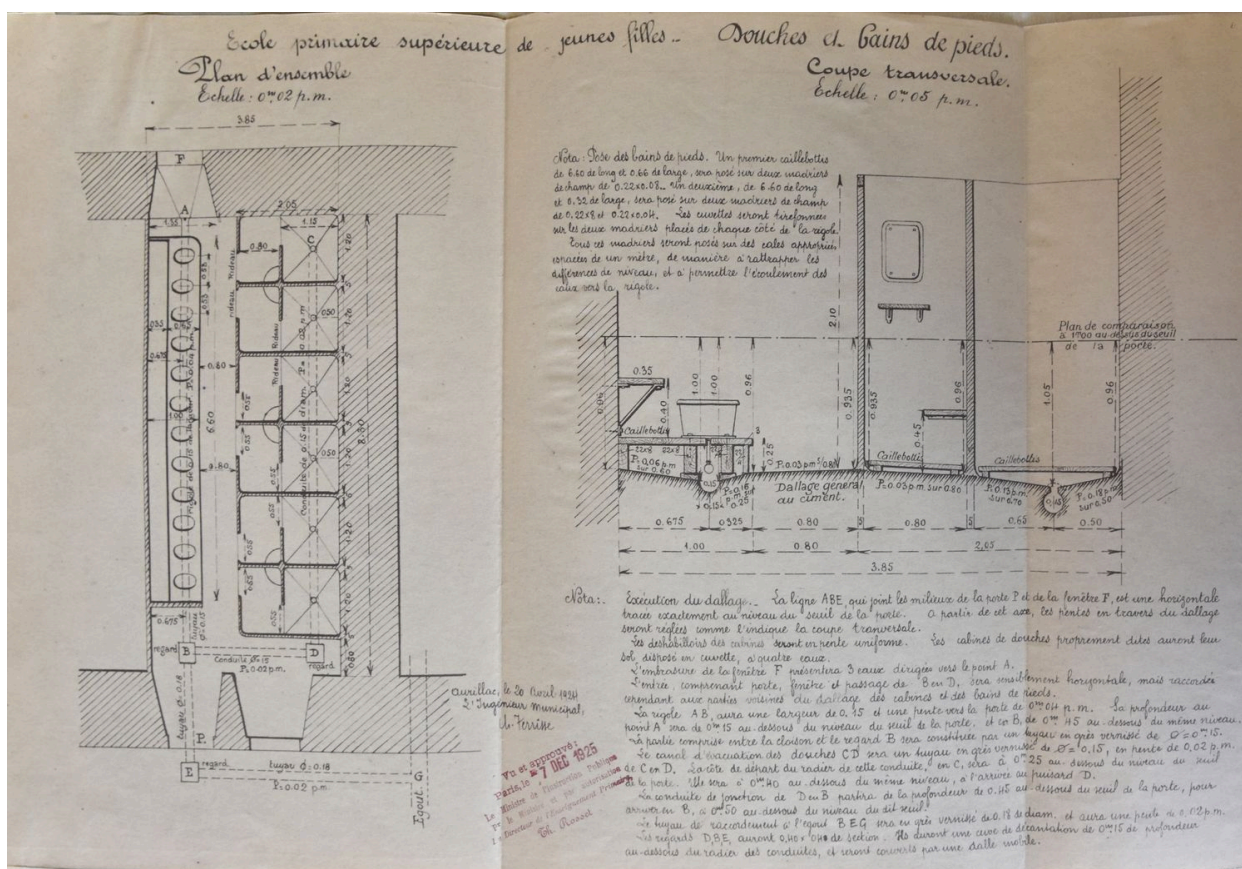 Ecole primaire supérieure de jeunes filles_ Douches et bains de pieds.
Plan d'ensemble
Echelle : 0m02 p.m.
Coupe transversale.
Echelle : 0m05 p.m.
3.85
F
A
2.05
1.35
1.15
C
0.80
1.20
Rideau
rideau
0.55
0.55
0.35
0.675
0.80
6.60
0.80
Rideau
Rideau
0.50
1.20
5
1.20
0.50
Conduite de 0.15 de diam. P= 0.02 p.m
8.80
0.55
0.55
0.55
0.55
1.20
0.80
0.675
regard
B
Conduite Ø=15
P=0.02 p.m.
D
regard
tuyau Ø=0.18
P
E
regard
tuyau Ø=0.18
P=0.02 p.m.
G
Egout
Nota : Pose des bains de pieds. Un premier caillebottis
de 6.60 de long et 0.66 de large, sera posé sur deux madriers
de champ de 0.22x0.08_ Un deuxième, de 6.60 de long
et 0.32 de large, sera posé sur deux madriers de champ
de 0.22x8 et 0.22x0.04. Les cuvettes seront tirefonnées
sur les deux madriers placés de chaque côté de la rigole.
Tous ces madriers seront posés sur des cales appropriées,
espacées de un mètre, de manière à rattrapper les
différences de niveau, et à permettre l'écoulement des
eaux vers la rigole.
2.10
Plan de comparaison
à 1m00 au-dessus du seuil
de la porte.
0.35
1.00
1.00
0.96
0.935
0.935
0.96
1.05
0.96
0.40
0.45
Caillebottis
Caillebottis
Caillebottis
22x8
22x8
0.25
P=0.06 p.m
sur 0.60
0.15
P=0.03 p.m
Dallage general
au ciment.
P=0.03 p.m. sur 0.80
P=0.13 p.m.
sur 0.70
P=0.18 p.m
sur 0.50
0.675
0.325
0.80
5
0.80
5
0.65
0.50
1.00
0.80
2.05
3.85
Nota:. Exécution du dallage._ La ligne ABE, qui joint les milieux de la porte P et de la fenêtre F, est une horizontale
tracée exactement au niveau du seuil de la porte. A partir de cet axe, les pentes en travers du dallage
seront réglées comme l'indique la coupe tranversale.
Les déshabilloirs des cabines seront en pente uniforme. Les cabines de douches proprement dites auront leur
sol disposé en cuvette, à quatre eaux.
L'embrasure de la fenêtre F présentera 3 eaux dirigées vers le point A.
L'entrée, comprenant porte, fenêtre et passage de B en D, sera sensiblement horizontale, mais raccordée
cependant aux parties voisines du dallage des cabines et des bains de pieds.
La rigole AB, aura une largeur de 0.15 et une pente vers la porte de 0m04 p.m. Sa profondeur au
point A sera de 0m15 au-dessous du niveau du seuil de la porte, et en B, de 0m45 au-dessous du même niveau.
La partie comprise entre la cloison et le regard B sera constituée par un tuyau en grès vernissé de Ø=0m15.
Le canal d'évacuation des douches CD sera un tuyau en grès vernissé de Ø=0.15, en pente de 0,02 p.m.
de C en D. La côte de départ du radier de cette conduite, en C, sera à 0m25 au dessous du niveau du seuil
de la porte. Elle sera à 0m40 au-dessous du même niveau, à l'arrivée au puisard D.
La conduite de jonction de D en B partira de la profondeur de 0.45 au-dessous du seuil de la porte, pour
arriver en B, à 0m50 au-dessous du niveau du dit seuil.
Le tuyau de raccordement à l'égout BEG sera en grès vernissé de 0.18 de diam. et aura une pente de 0,02 p.m.
Les regards D,B,E, auront 0,40 x 0m40 de section. Ils auront une cuve de décantation de 0m15 de profondeur
au-dessous du radier des conduites, et seront couverts par une dalle mobile.
Aurillac, le 20 Avril 1924
L'Ingénieur Municipal,
Vu et approuvé:
Paris, le 7 DEC 1925
Le Ministre de l'Instruction Publique
Pour le Ministre et par autorisation
Le Directeur de l'Enseignement Primaire
Th. Rosset